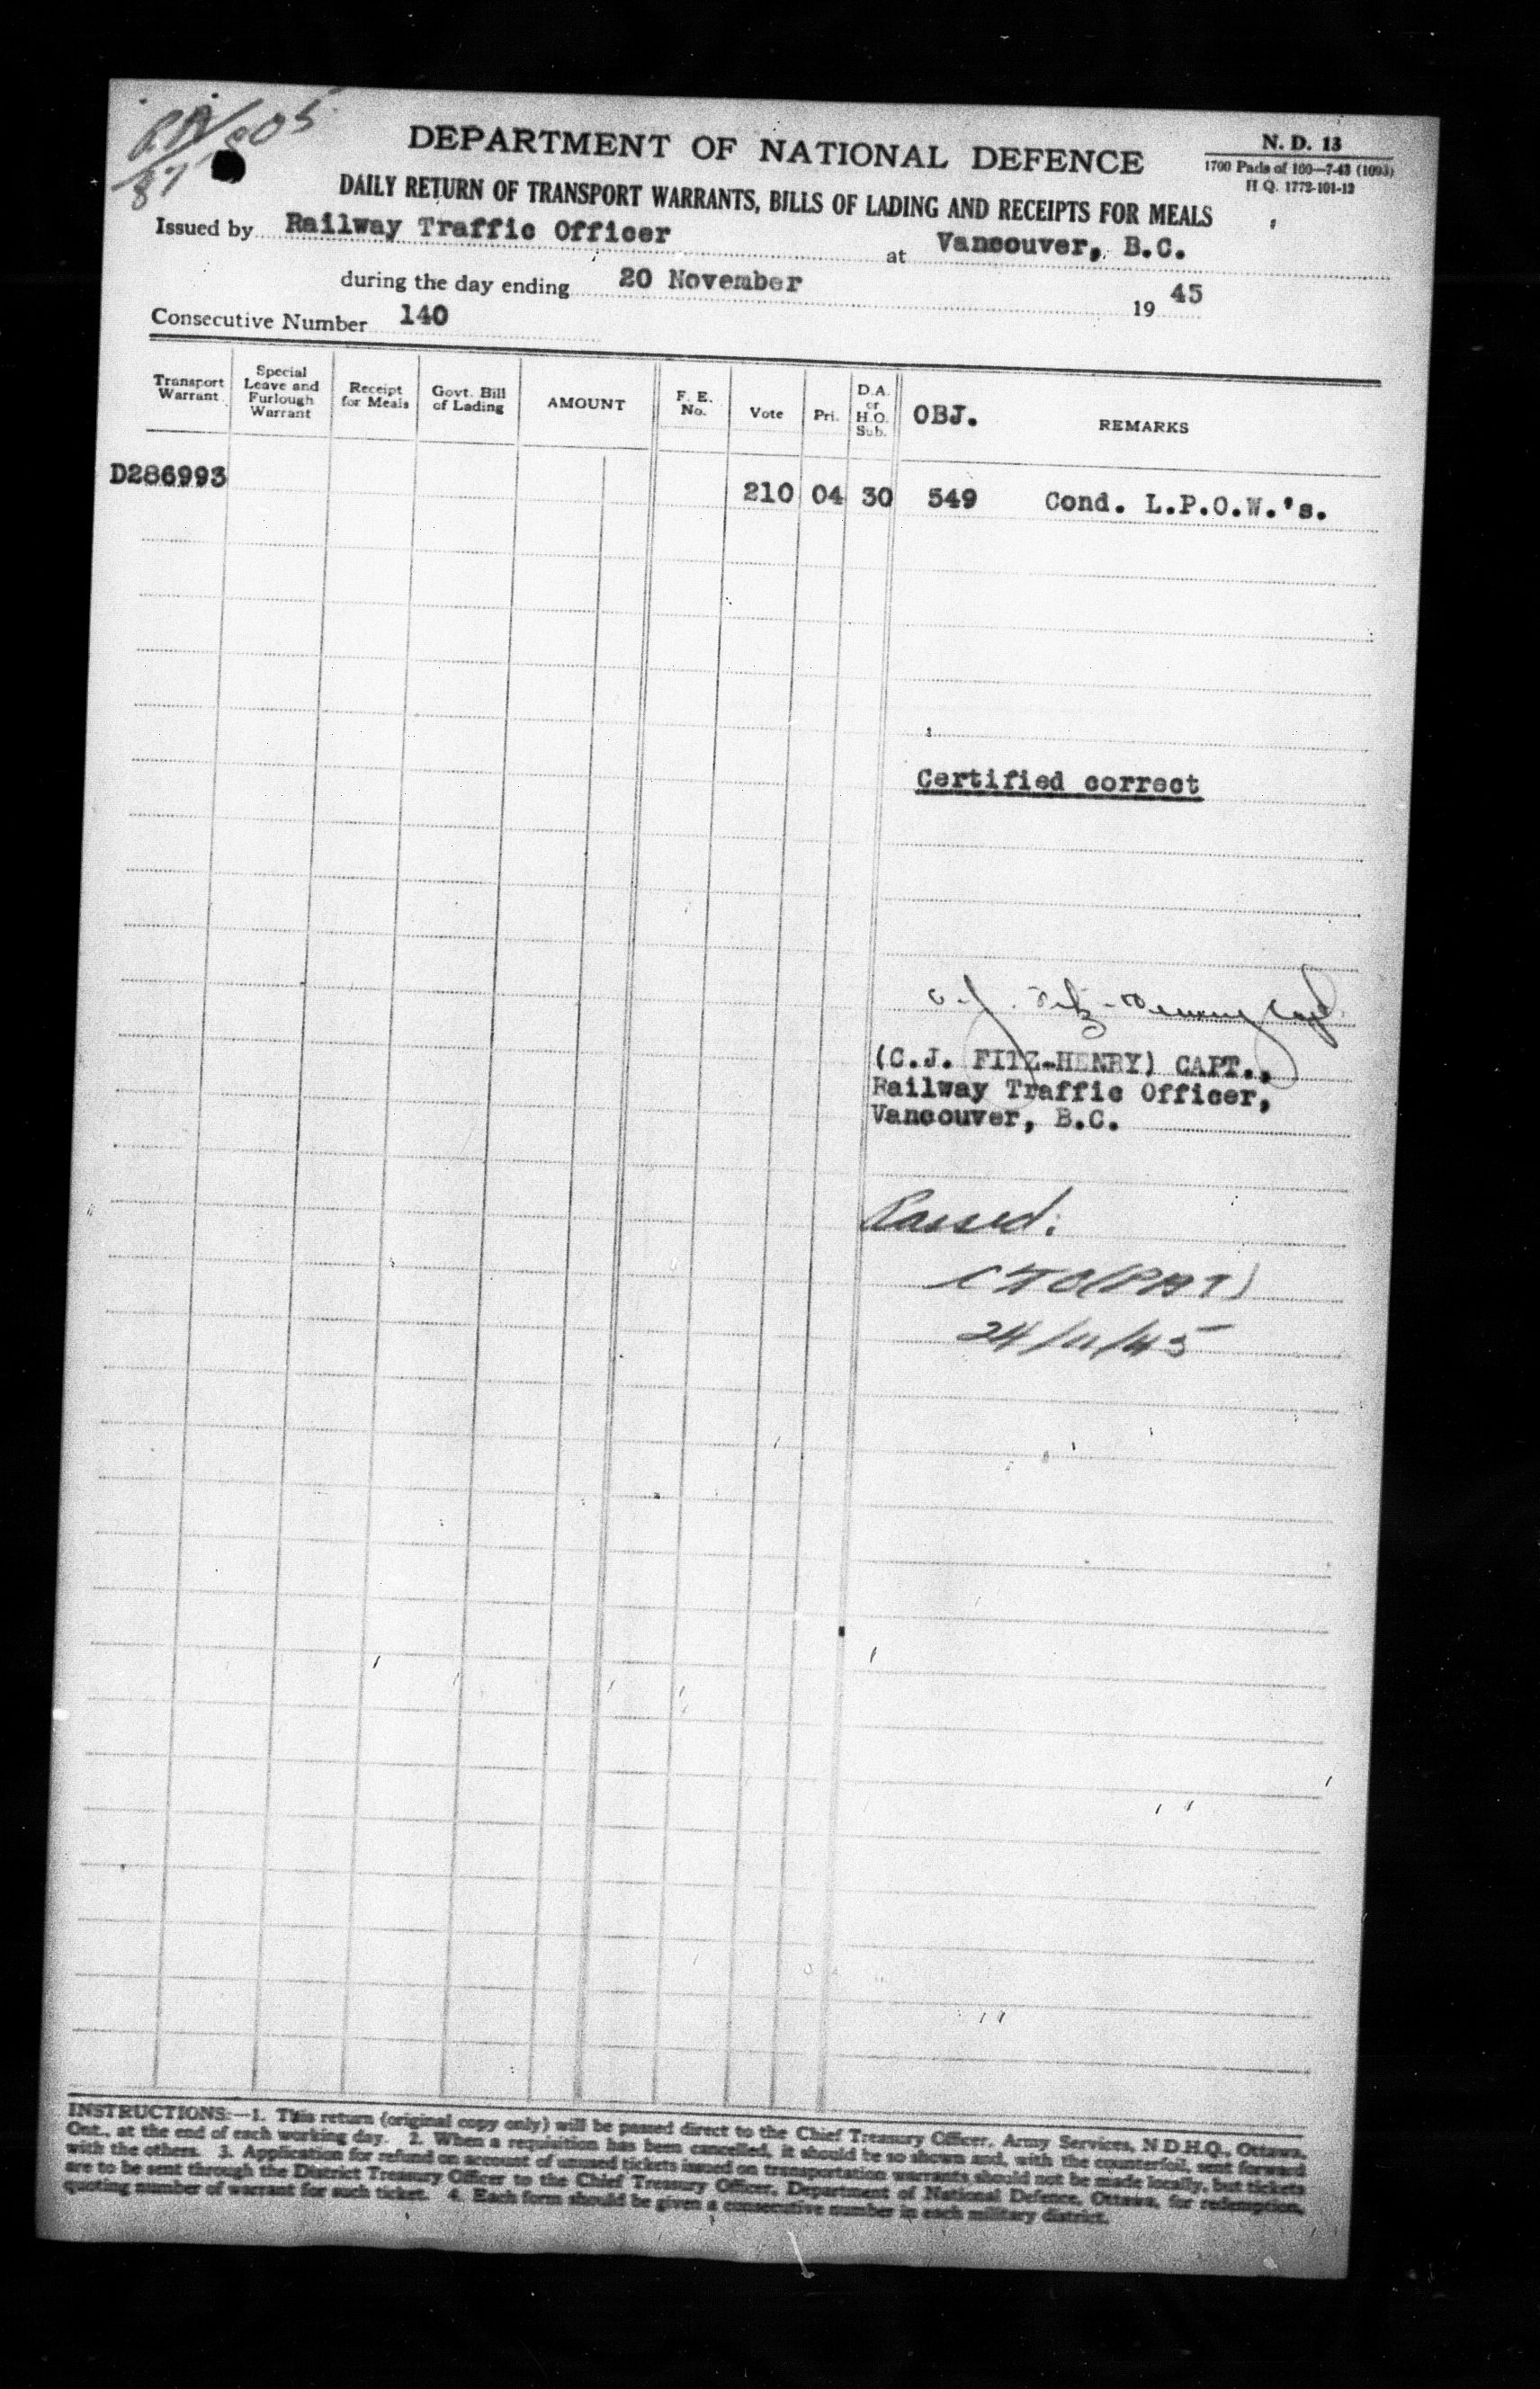 DEPARTMENT OF NATIONAL DEFENCE
N. D. 13
1700 Pads of 100—7-43 (1093)
H.Q. 1772-101-13
DAILY RETURN OF TRANSPORT WARRANTS, BILLS OF LADING AND RECEIPTS FOR MEALS
Issued by Railway Traffic Officer at Vancouver, B.C.
during the day ending 20 November 19 45
Consecutive Number 140
Transport Warrant
Special Leave and Furlough Warrant
Receipt for Meals
Govt. Bill of Lading
AMOUNT
F. E. No.
Vote
Pri.
D.A. or H.O. Sub.
OBJ.
REMARKS
D286993 210 04 30 549 Cond. L.P.O.W.'s.
Certified correct
C.J. Fitz-Henry Capt.
(C.J. FITZ-HENRY) CAPT.,
Railway Traffic Officer,
Vancouver, B.C.
Passed.
24/11/45
INSTRUCTIONS:—1. This return (original copy only) will be passed direct to the Chief Treasury Officer, Army Services, N.D.H.Q., Ottawa,
Ont., at the end of each working day. 2. When a requisition has been cancelled, it should be so shown and, with the counterfoil, sent forward
with the others. 3. Application for refund on account of unused tickets issued on transportation warrants should not be made locally, but tickets
are to be sent through the District Treasury Officer to the Chief Treasury Officer, Department of National Defence, Ottawa, for redemption,
quoting number of warrant for such ticket. 4. Each form should be given a consecutive number in each military district.